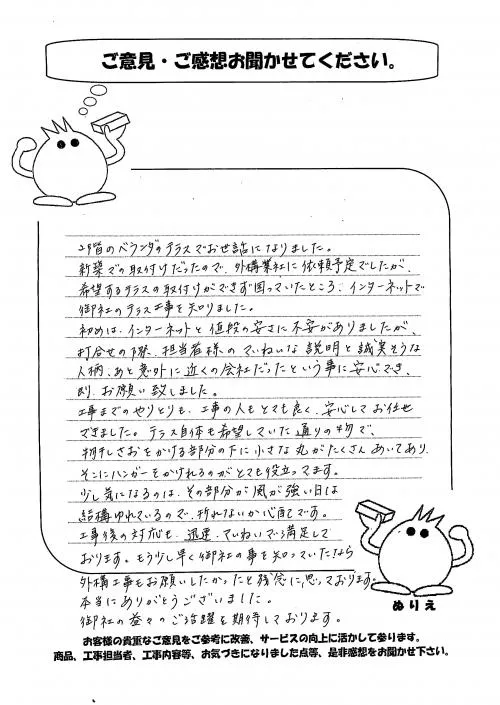 ご意見・ご感想お聞かせてください。
2階のベランダのテラスでお世話になりました。
新築での取付けだったので、外構業社に依頼予定でしたが、
希望するテラスの取付けができず困っていたところ、インターネットで
御社のテラス工事を知りました。
初めは、インターネットと値段の安さに不安がありましたが、
打合せの際、担当者様のていねいな説明と誠実そうな
人柄、あと意外に近くの会社だったという事に安心でき、
即、お願い致しました。
工事までのやりとりも、工事の人もとても良く、安心してお任せ
できました。テラス自体も希望していた通りの物で、
物干しざおをかける部分の下に小さな丸がたくさんあいてあり、
そこにハンガーをかけれるのがとても役立ってます。
少し気になるのは、その部分が風が強い日は
結構ゆれているので、折れないか心配です。
工事後の対応も、迅速、ていねいで満足して
おります。もう少し早く御社の事を知っていたなら
外構工事もお願いしたかったと残念に思っております。
本当にありがとうございました。
御社の益々のご活躍を期待しております。
ぬりえ
お客様の貴重なご意見をご参考に改善、サービスの向上に活かして参ります。
商品、工事担当者、工事内容等、お気づきになりました点等、是非感想をお聞かせ下さい。